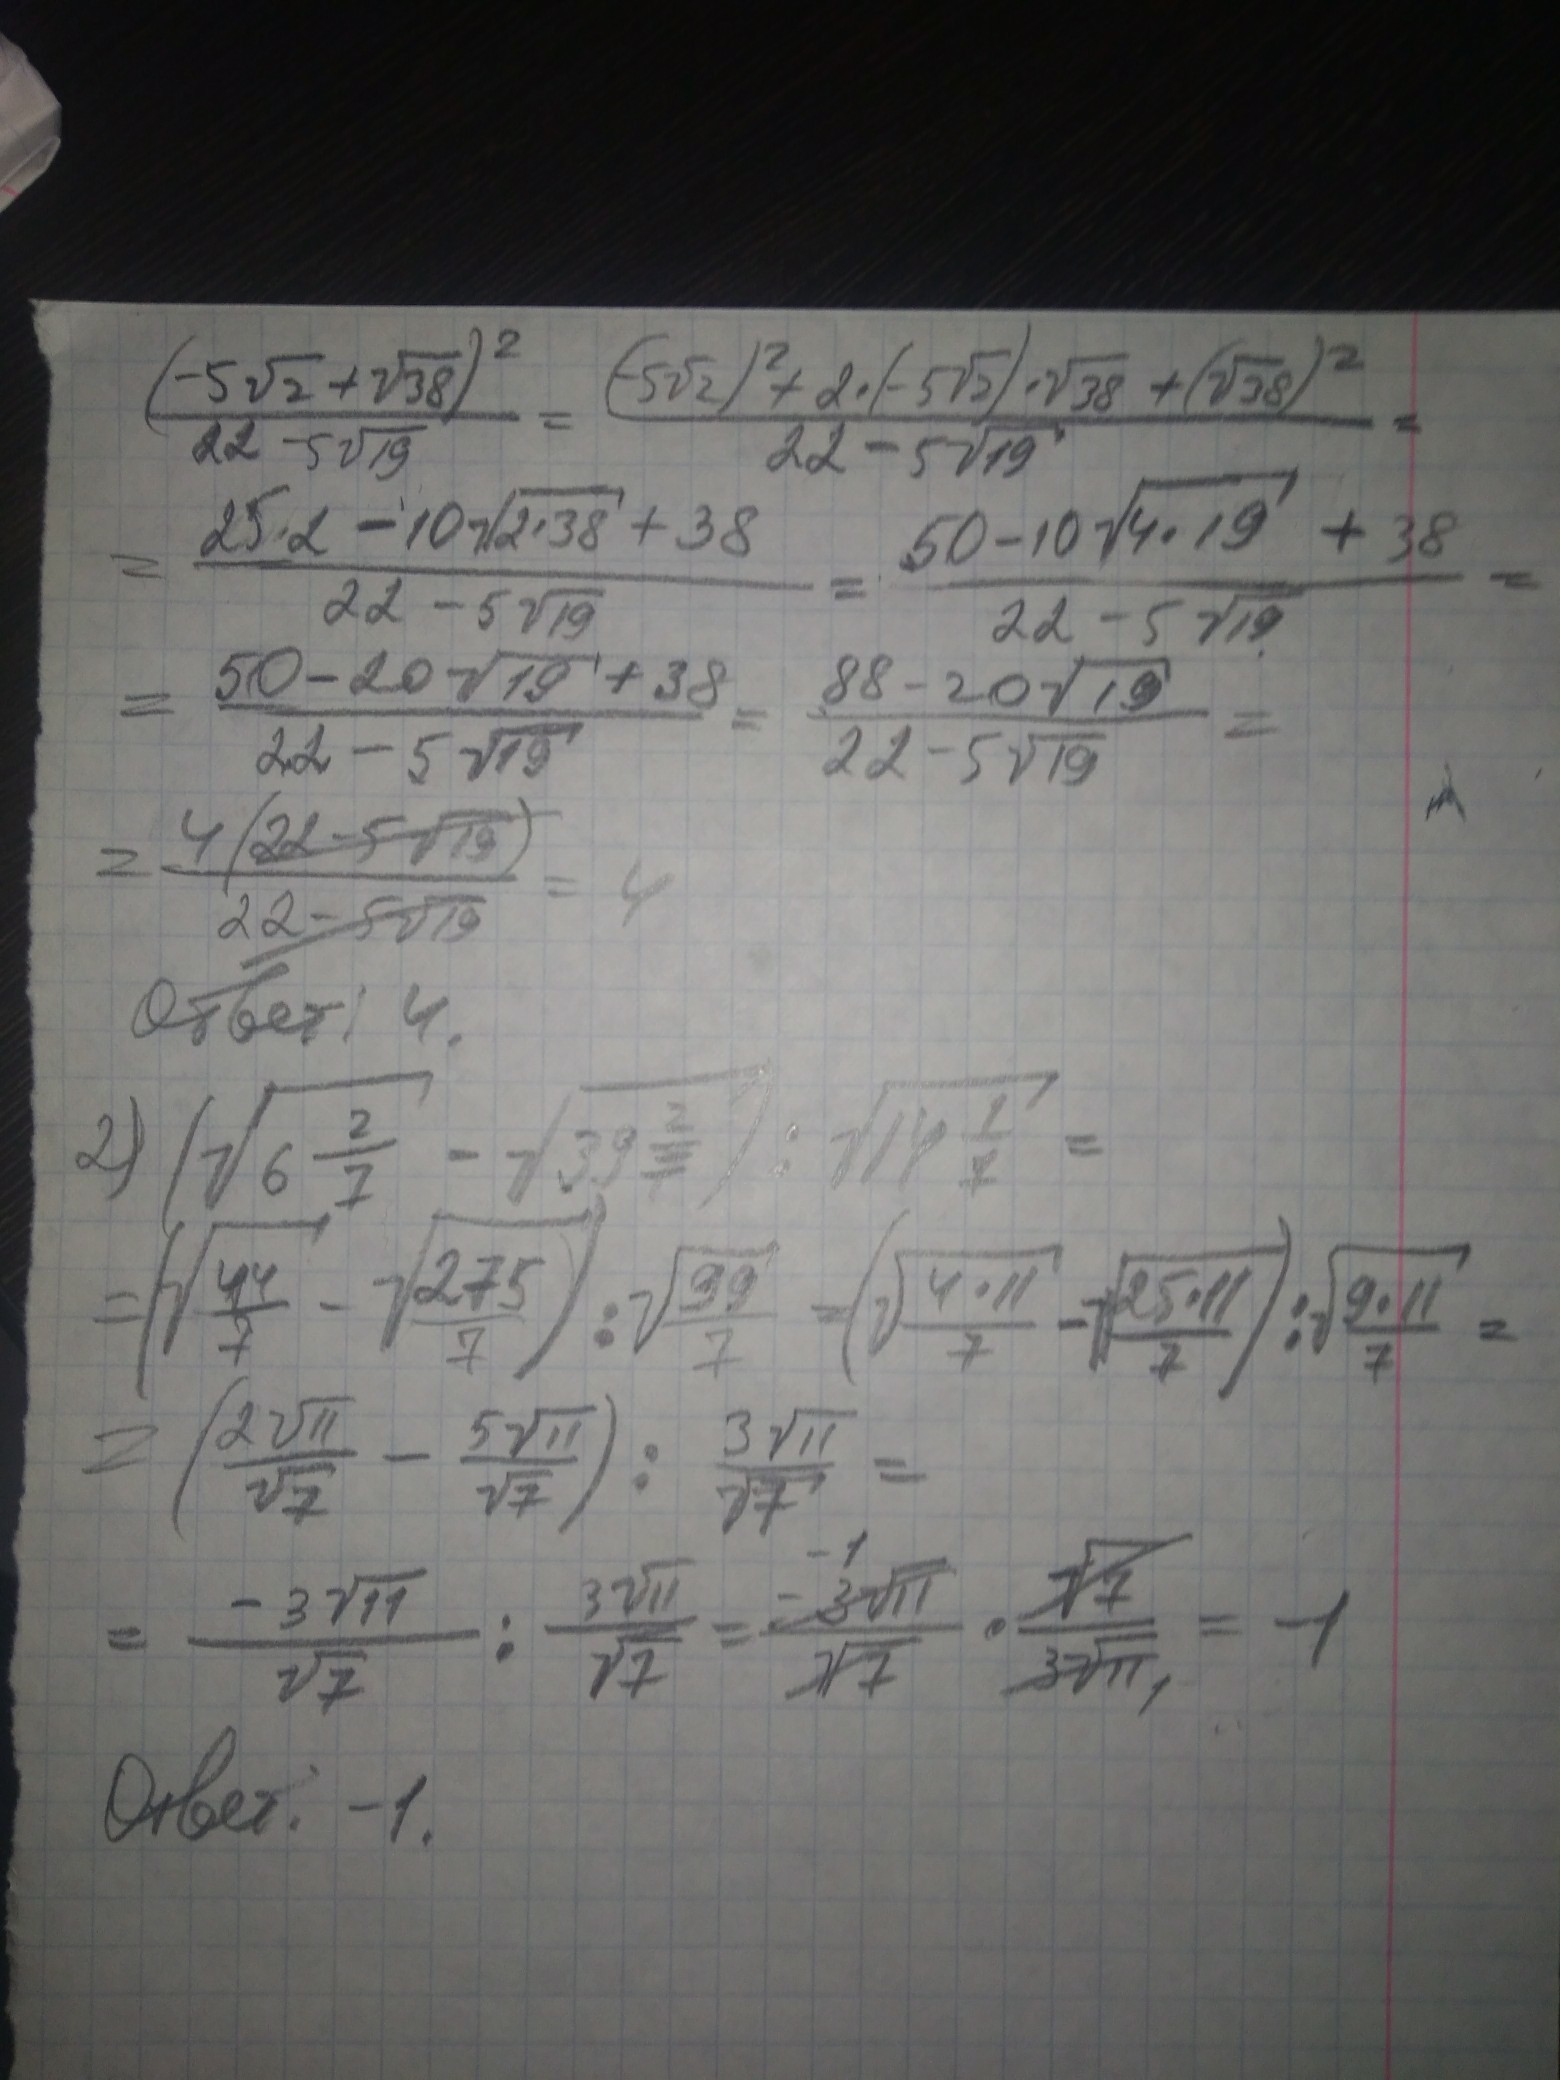 (-5√2+√38)²/(22-5√19) = ((-5√2)²+2·(-5√2)·√38+(√38)²)/(22-5√19) =
= (25·2-10√(2·38)+38)/(22-5√19) = (50-10√(4·19)+38)/(22-5√19) =
= (50-20√19+38)/(22-5√19) = (88-20√19)/(22-5√19) =
= 4(22-5√19)/(22-5√19) = 4
Ответ: 4.
2) (√(6 2/7) - √(39 2/7)) : √(14 1/7) =
= (√(44/7) - √(275/7)) : √(99/7) = (√(4·11/7) - √(25·11/7)) : √(9·11/7) =
= (2√11/√7 - 5√11/√7) : 3√11/√7 =
= -3√11/√7 : 3√11/√7 = -3√11/√7 · √7/3√11 = -1
Ответ: -1.